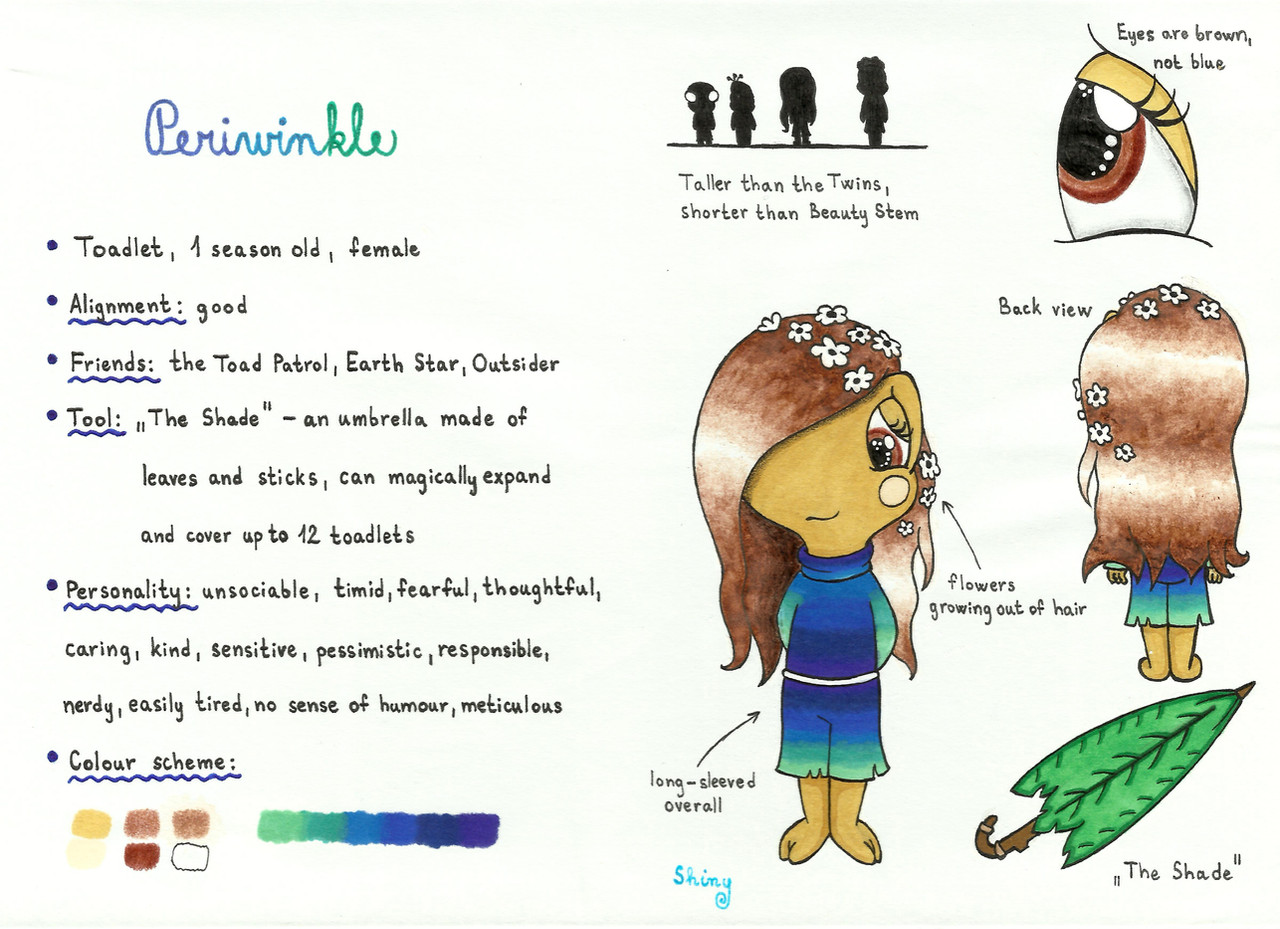 Periwinkle
• Toadlet, 1 season old, female
• Alignment: good
• Friends: the Toad Patrol, Earth Star, Outsider
• Tool: „The Shade" – an umbrella made of
leaves and sticks, can magically expand
and cover up to 12 toadlets
• Personality: unsociable, timid, fearful, thoughtful,
caring, kind, sensitive, pessimistic, responsible,
nerdy, easily tired, no sense of humour, meticulous
• Colour scheme:
Taller than the Twins,
shorter than Beauty Stem
Eyes are brown,
not blue
Back view
flowers
growing out of hair
long-sleeved
overall
„The Shade"
Shiny